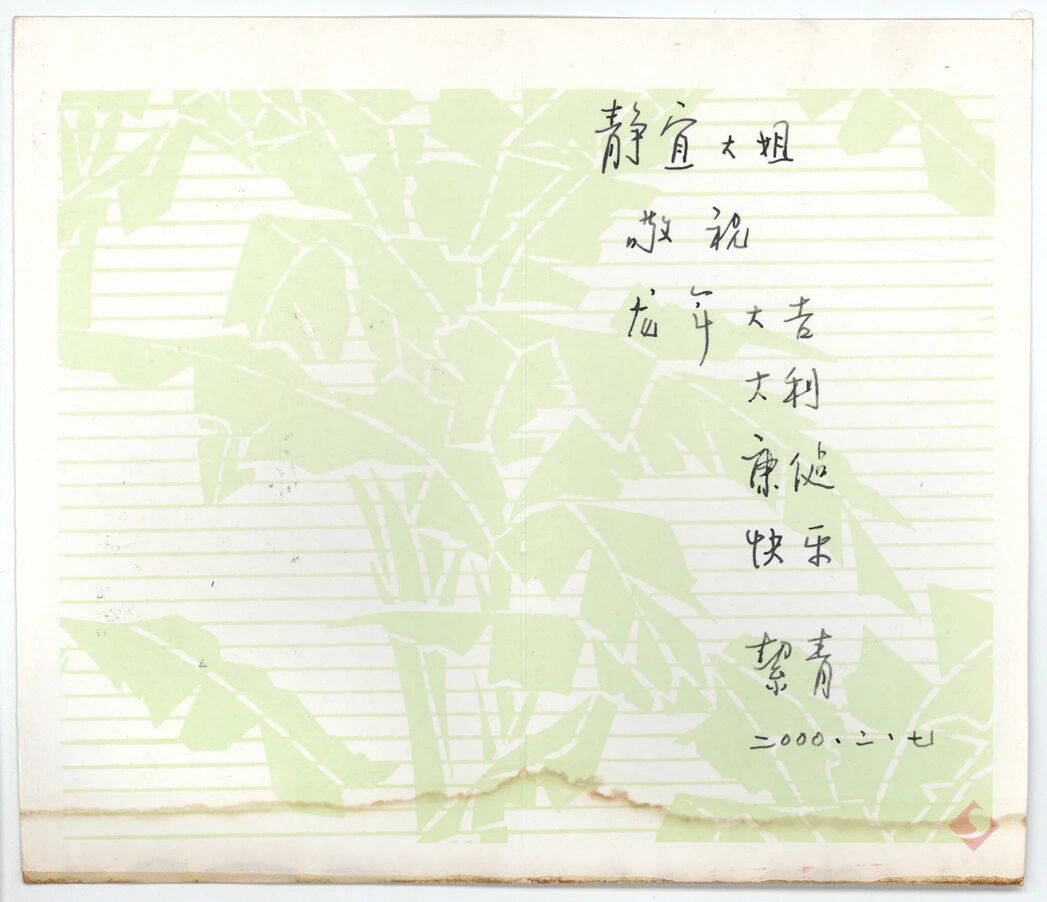 静宜大姐
敬祝
龙年大吉
大利
康健
快乐
絜青
二000.二.七